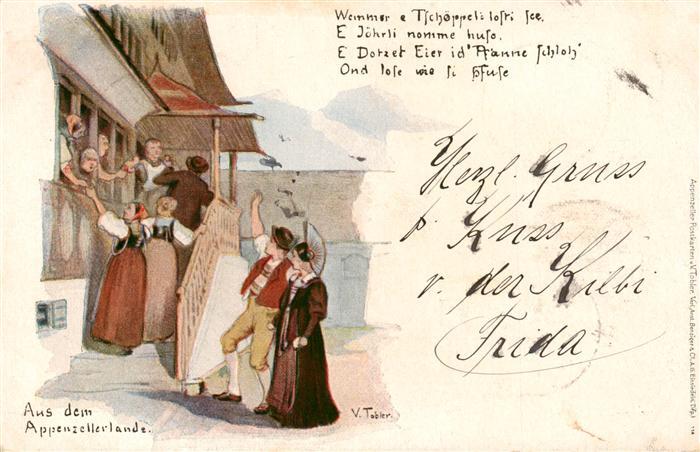 Wemmer e Tschöppeli losti see,
E Jöhrli nomme huse,
E Dotzet Eier id' Pfanne schloh'
Ond lose wie si pfuse
Herzl. Gruss
& Kuss
v. der Kilbi
Frida
Aus dem
Appenzellerlande.
V. Tobler.
Appenzeller Postkarten v. V. Tobler. Verl. Anst. Benziger & Co. A.G. Einsiedeln